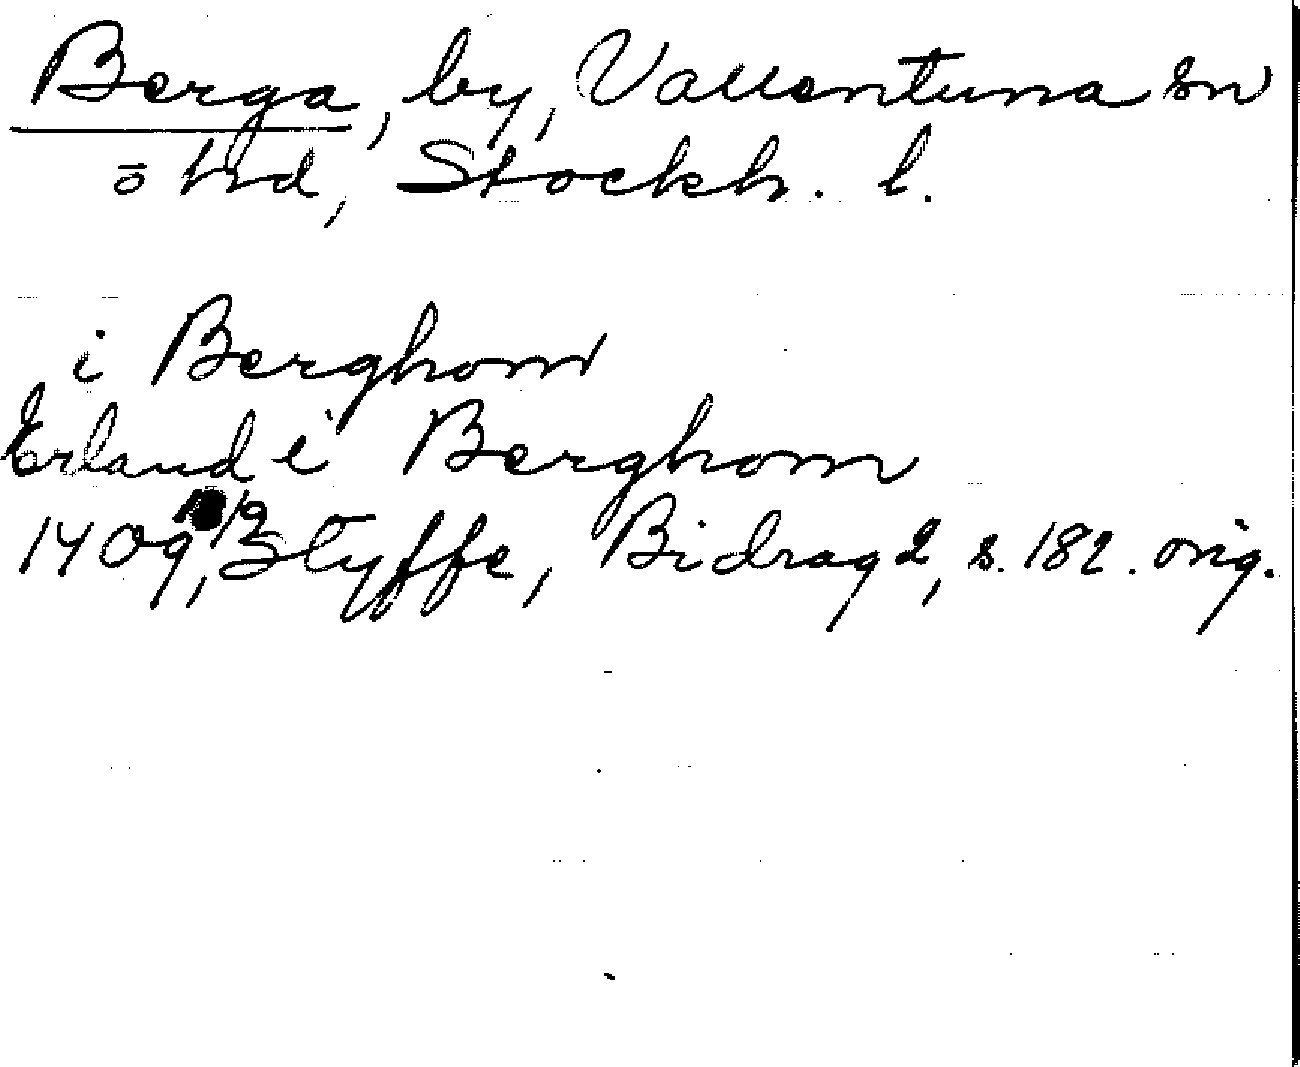 Berga, by, Vallentuna sn
o hd, Stockh. l.
i Berghom
Erland i Berghom
1409, Styffe, Bidrag 2, s. 182. orig.